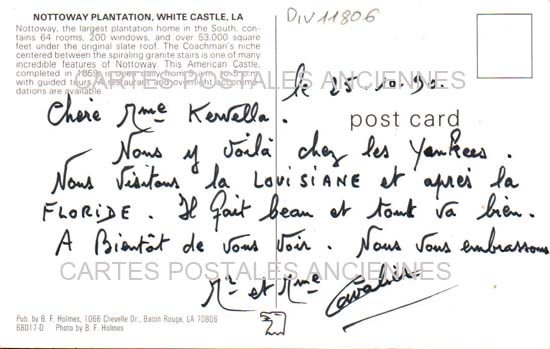 NOTTOWAY PLANTATION, WHITE CASTLE, LA
Nottoway, the largest plantation home in the South, contains
64 rooms, 200 windows, and over 53,000 square
feet under the original slate roof. The Coachman's niche
centered between the spiraling granite stairs is one of many
incredible features of Nottoway. This American Castle,
completed in 1859, is open daily from 9 am to 5 pm
with guided tours. Restaurant and overnight accommo-
dations are available.
DIV11806
le 25.10.90.
Chère Mme Kervella.
post card
Nous y voilà chez les Yankees.
Nous visitons la LOUISIANE et après la
FLORIDE. Il fait beau et tout va bien.
A Bientôt de vous voir. Nous vous embrassons
Mr et Mme
CARTES POSTALES ANCIENNES
CARTES POSTALES ANCIENNES
Pub. by B. F. Holmes, 1066 Chevelle Dr., Baton Rouge, LA 70806
68017-D Photo by B. F. Holmes